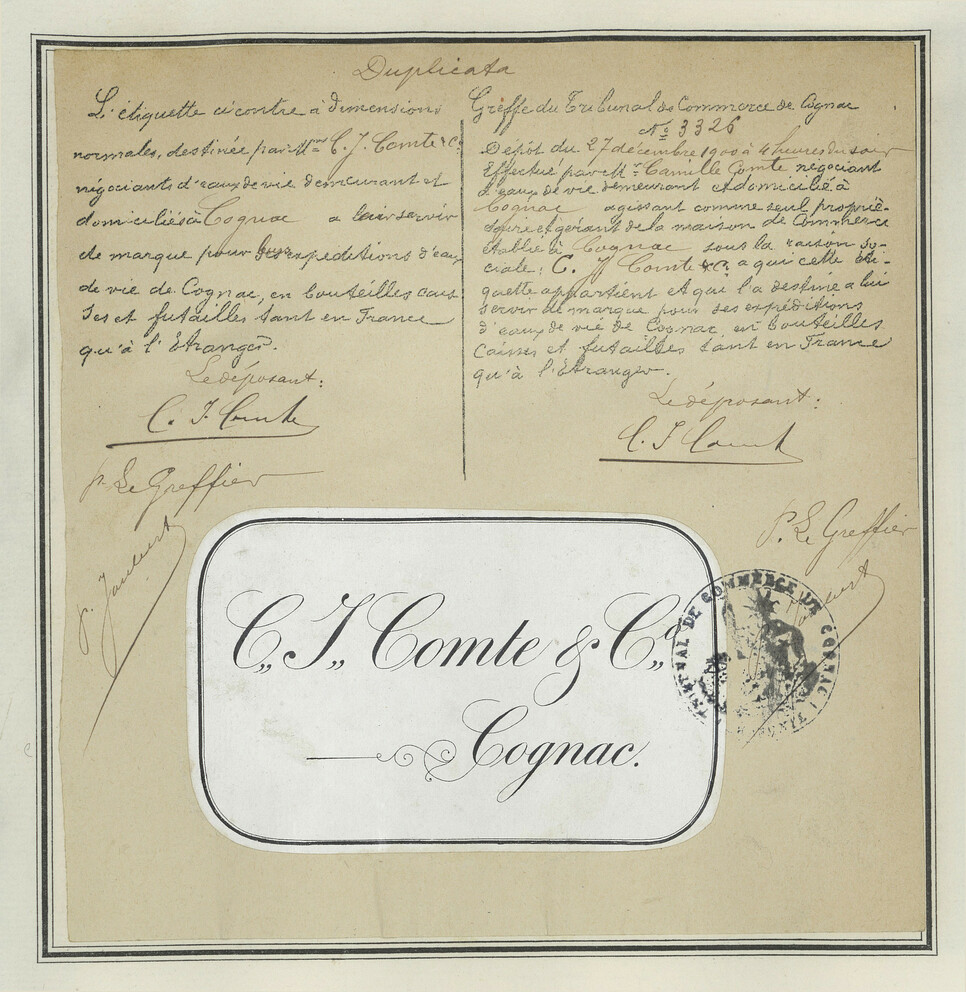 Duplicata
L'étiquette ci contre à dimensions
normales, destinée par M.rs C. J. Comte & Co.
négociants d'eaux de vie demeurant et
domiciliés à Cognac a leur servir
de marque pour expeditions d'eaux
de vie de Cognac, en bouteilles cais
ses et futailles tant en France
qu'à l'Etranger.
Le déposant:
C. J. Comte
p. Le Greffier
Greffe du Tribunal de Commerce de Cognac
No 3326
Dépôt du 27 décembre 1900 à 4 heures du soir
Effectué par M.r Camille Comte négociant
d'eaux de vie demeurant et domicilié à
Cognac agissant comme seul proprié-
taire et gérant de la maison de Commerce
établie à Cognac sous la raison so-
ciale: C. J Comte & Co. a qui cette éti-
quette appartient et qui l'a destinée a lui
servir de marque pour ses expéditions
d'eaux de vie de Cognac, en bouteilles
Caisses et futailles tant en France
qu'à l'Etranger.
Le déposant:
C. J Comte
P. Le Greffier
C. J. Comte & Co.
Cognac.
TRIBUNAL DE COMMERCE DE COGNAC